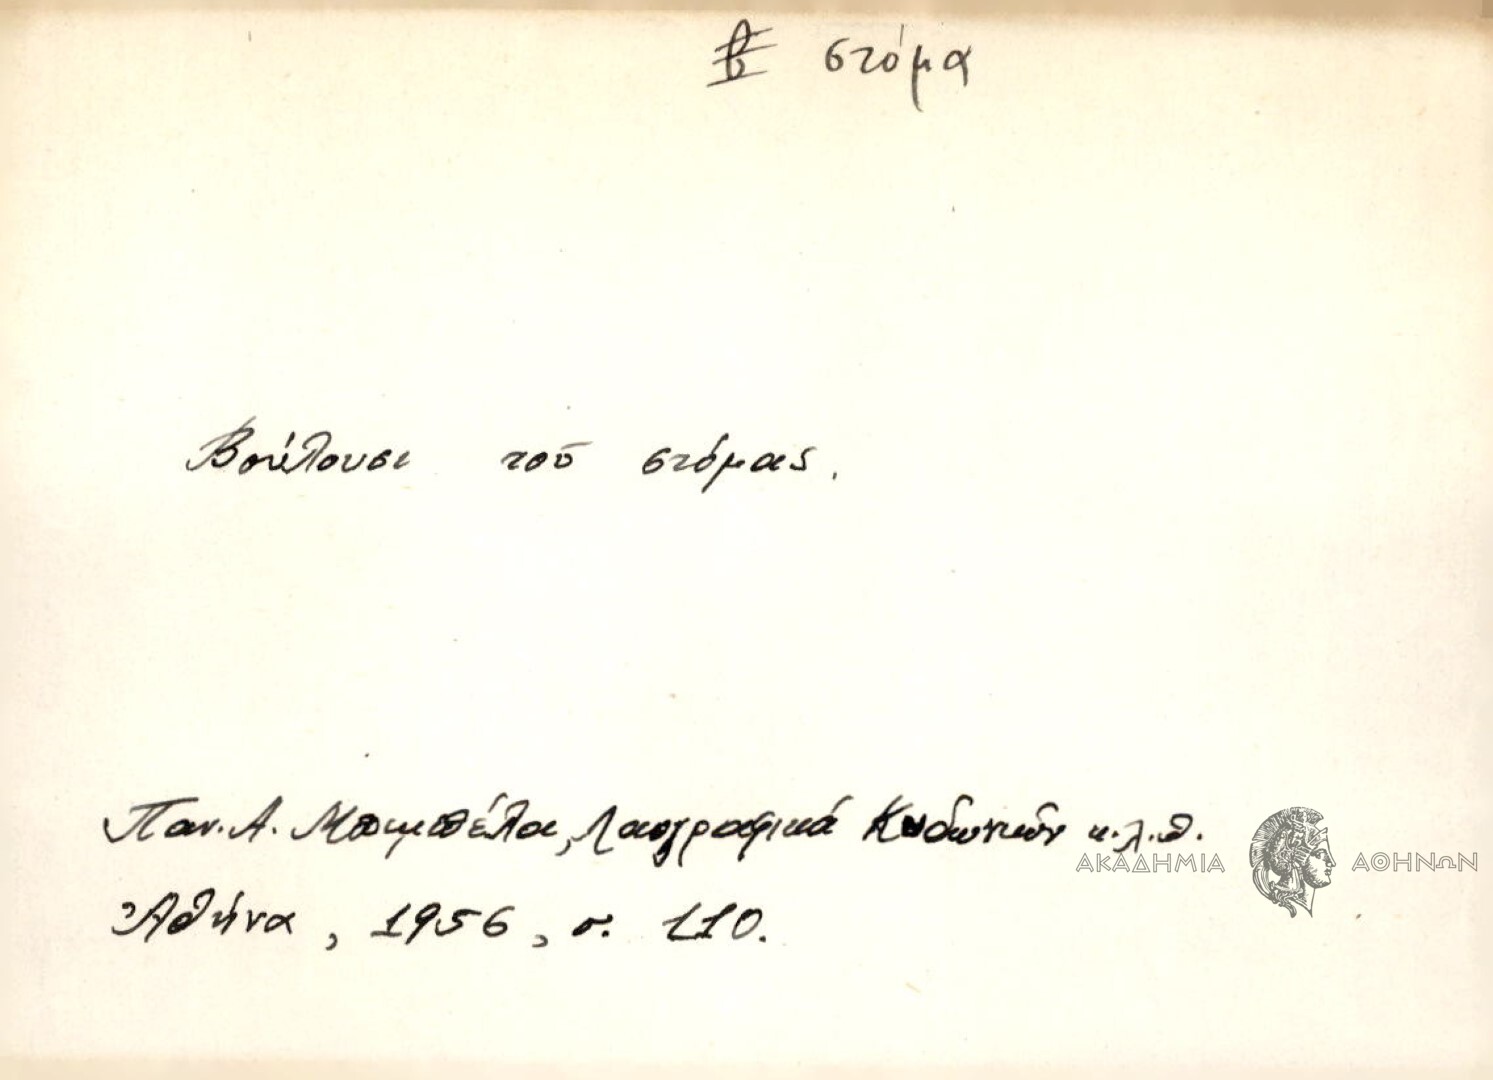 στόμα
Βούλουσι τοῦ στόμας.
Παν. Δ. Μπιμπέλα, Λαογραφικά Κυδωνιῶν κ.λ.π.
Ἀθήνα, 1956, σ. 110.
ΑΚΑΔΗΜΙΑ ΑΘΗΝΩΝ